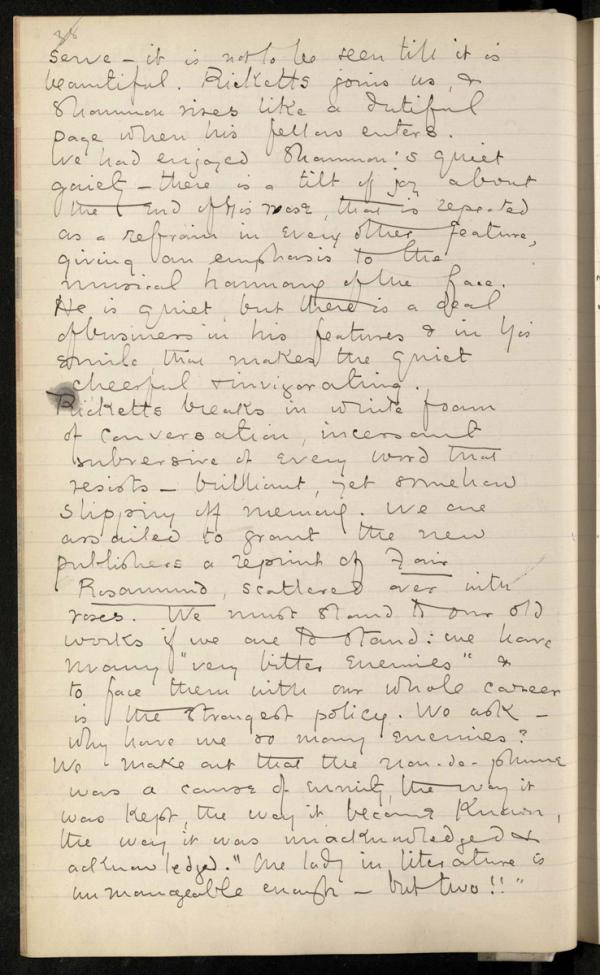 38
serve – it is not to be seen till it is
beautiful. Ricketts joins us, &
Shannon rises like a dutiful
page when his fellow enters.
We had enjoyed Shannon's quiet
gaiety – there is a tilt of joy about
the end of his nose, that is repeated
as a refrain in every other feature,
giving an emphasis to the
musical harmony of the face.
He is quiet, but there is a deal
of business in his features & in his
smile that makes the quiet
cheerful & invigorating.
Ricketts breaks in white foam
of conversation, incessant
subversive of every word that
resists – brilliant, yet somehow
slipping off memory. We are
assailed to grant the new
publishers a reprint of Fair
Rosamund, scattered over with
roses. We must stand to our old
works if we are to stand: we have
many "very bitter enemies" &
to face them with our whole career
is the strongest policy. We ask –
why have we so many enemies?
We make out that the nom-de-plume
was a cause of enmity, the way it
was kept, the way it became known,
the way it was unacknowledged &
acknowledged. "One lady in literature is
unmanageable enough – but two!!"